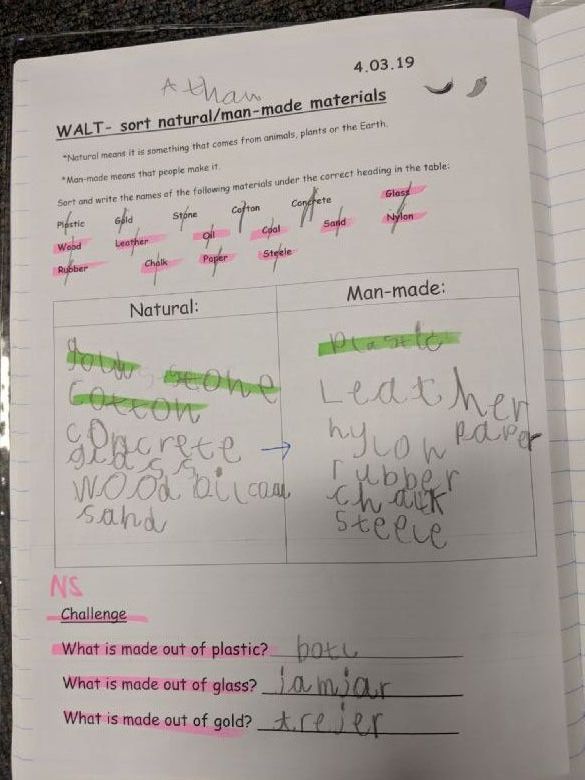 4.03.19
Athan
WALT- sort natural/man-made materials
*Natural means it is something that comes from animals, plants or the Earth.
*Man-made means that people make it.
Sort and write the names of the following materials under the correct heading in the table:
Plastic Gold Stone Cotton Concrete Glass
Wood Leather Oil Coal Sand Nylon
Rubber Chalk Paper Steele
Natural: Man-made:
stone plastic
cotton Leather
concrete nylon paper
glass rubber
wood oil coal chalk
sand steele
NS
Challenge
What is made out of plastic? botl
What is made out of glass? jamjar
What is made out of gold? trejer